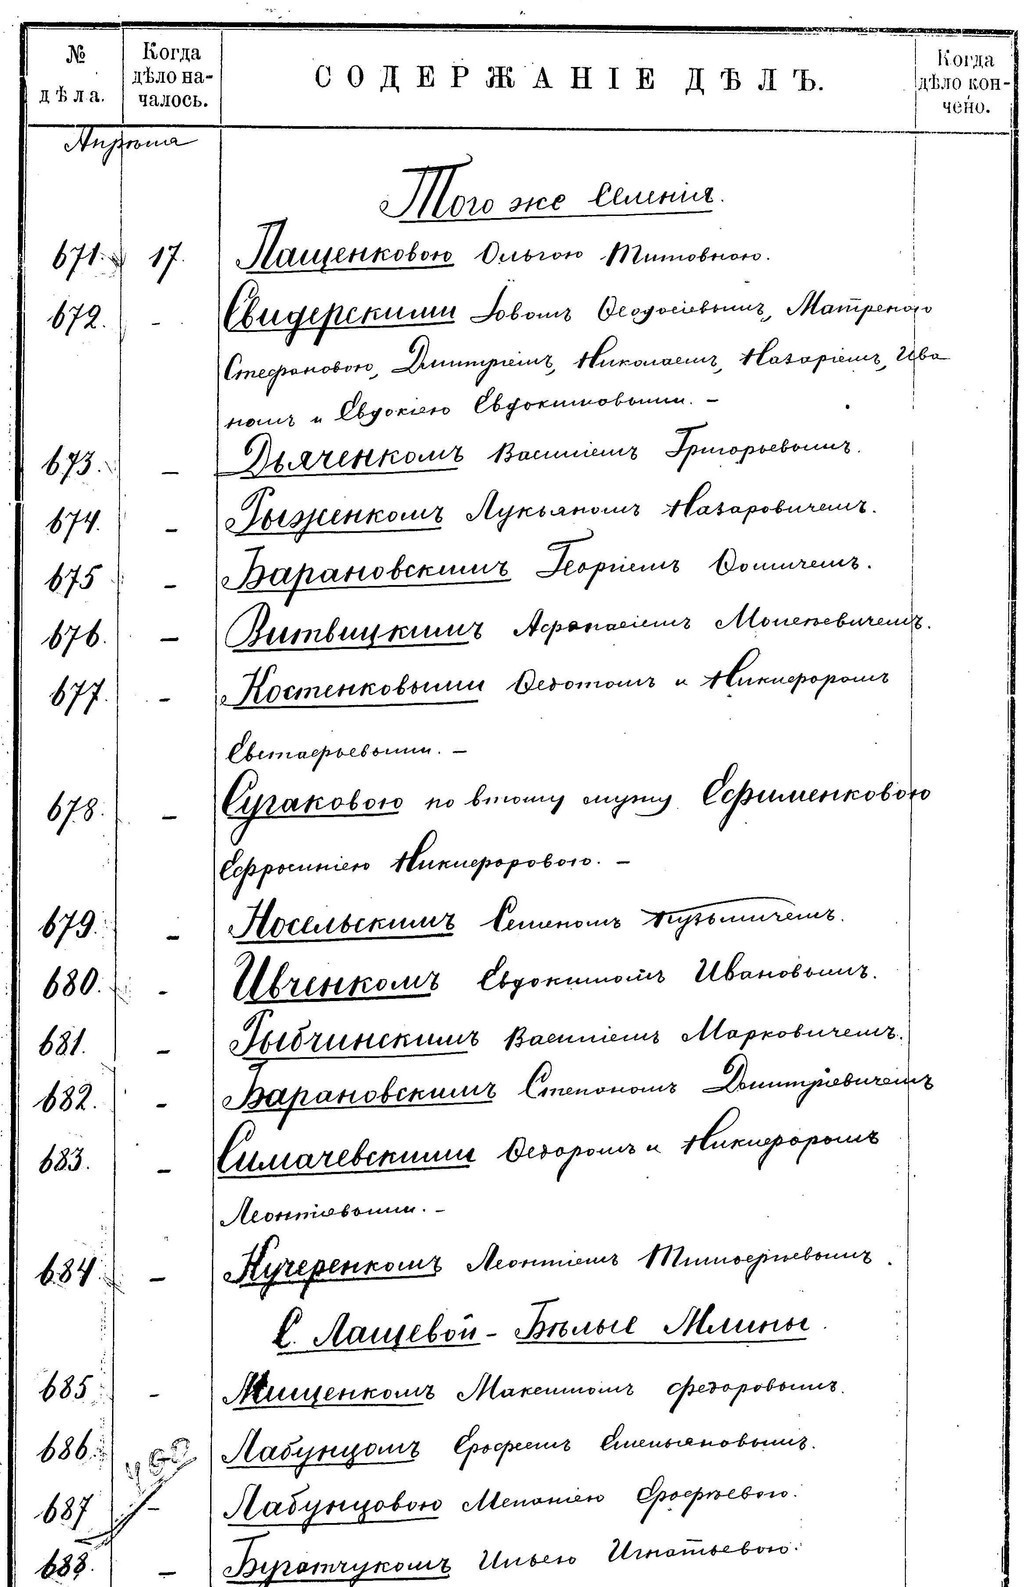 № дѣла.
Когда дѣло на-чалось.
СОДЕРЖАНІЕ ДѢЛЪ.
Когда дѣло кон-чено.
Апрѣля
Того же Селенія.
671. 17. Пащенковою Ольгою Титовною.
672. - Свидерскими Іовомъ Ѳеодосіевымъ, Матреною
Стефановою, Дмитріемъ, Николаемъ, Назаріемъ, Ива
номъ и Евдокіею Евдокимовыми. -
673. - Дьяченкомъ Василіемъ Григорьевымъ.
674. - Рыженкомъ Лукьяномъ Назаровичемъ.
675 - Барановскимъ Георгіемъ Ѳомичемъ.
676. - Витвицкимъ Афанасіемъ Моисѣевичемъ.
677. - Костенковыми Ѳедотомъ и Никифоромъ
Евстафьевыми. -
678. - Сугаковою по втому мужу Ефименковою
Ефросиніею Никифоровою. -
679. - Носельскимъ Семеномъ Кузьмичемъ.
680. - Ивченкомъ Евдокимомъ Ивановымъ.
681. - Рыбчинскимъ Василіемъ Марковичемъ.
682. - Барановскимъ Степаномъ Дмитріевичемъ
683. - Симачевскими Ѳедоромъ и Никифоромъ
Леонтіевыми. -
684. - Кучеренкомъ Леонтіемъ Тимофѣевымъ.
С. Лащевой - Бѣлые Млины.
685 - Мищенкомъ Максимомъ Федоровымъ.
686. Лабунцомъ Ерофеемъ Емельяновымъ.
687 - Лабунцовою Меланіею Ерофѣевою.
688. - Бугатчукомъ Ильею Игнатьевою.